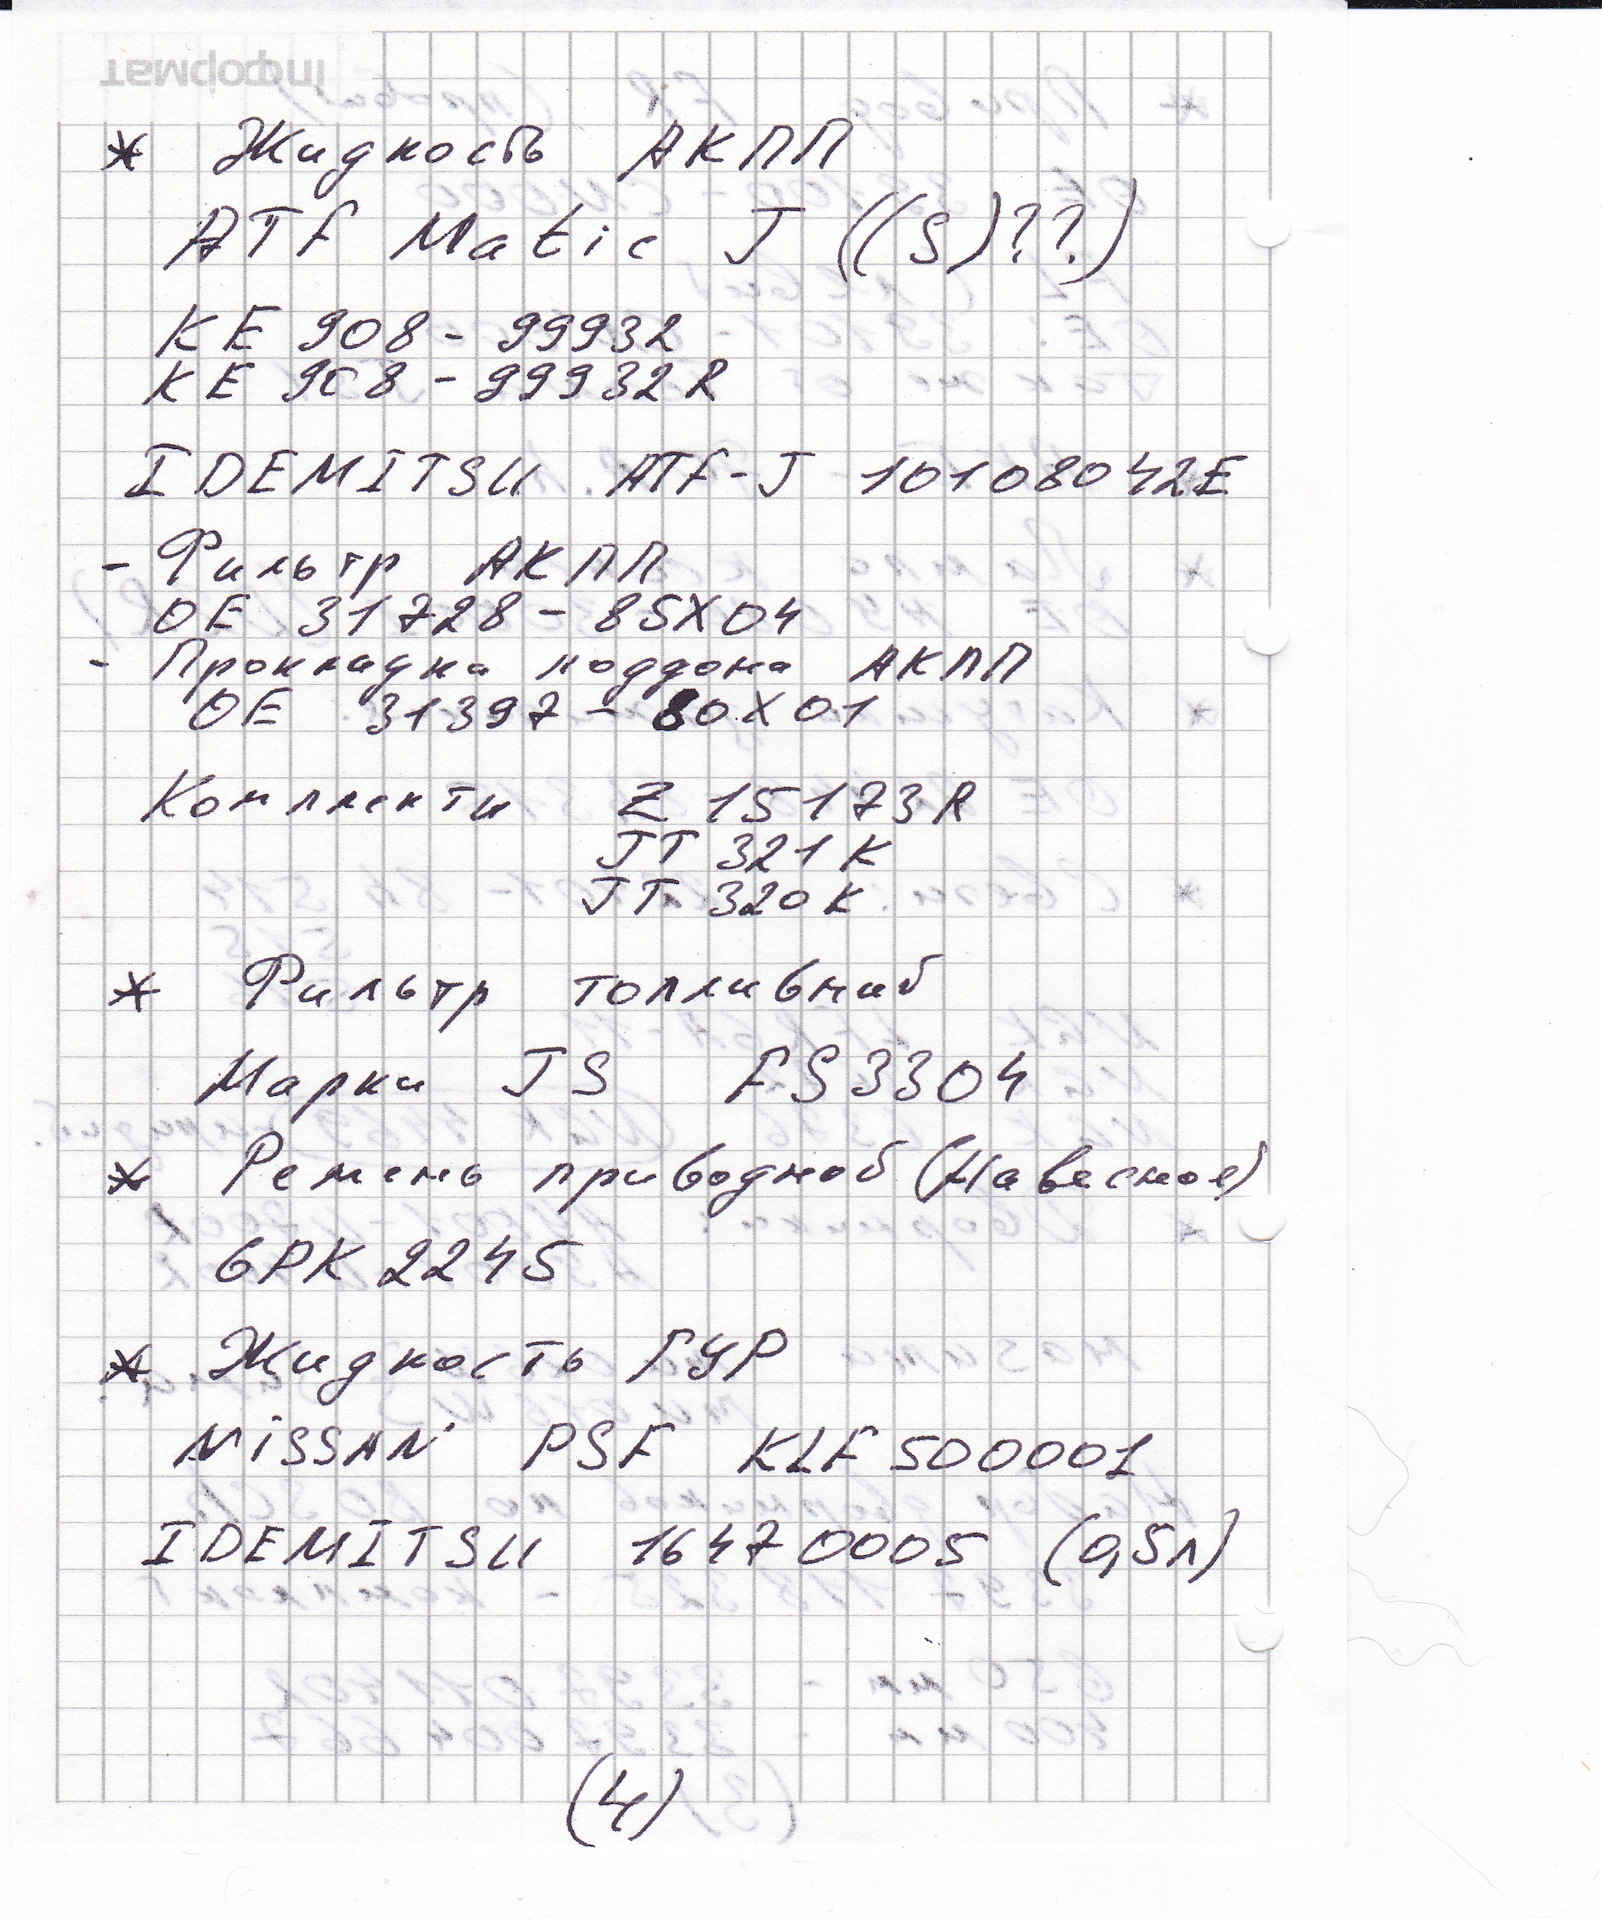 інформат
* Жидкость АКПП
ATF Matic J ((S)??)
KE 908 - 99932
KE 908 - 99932R
IDEMITSU ATF-J 10108042E
- Фильтр АКПП
OE 31728 - 85X04
- Прокладка поддона АКПП
OE 31397 - 80X01
Комплекти Z 15173R
JT 321K
JT 320K
* Фильтр топливний
Марки JS FS3304
* Ремень приводной (Навесное)
6PK 2245
* Жидкость ГУР
NiSSAN PSF KLF 500001
IDEMITSU 16470005 (0,5л)
(4)